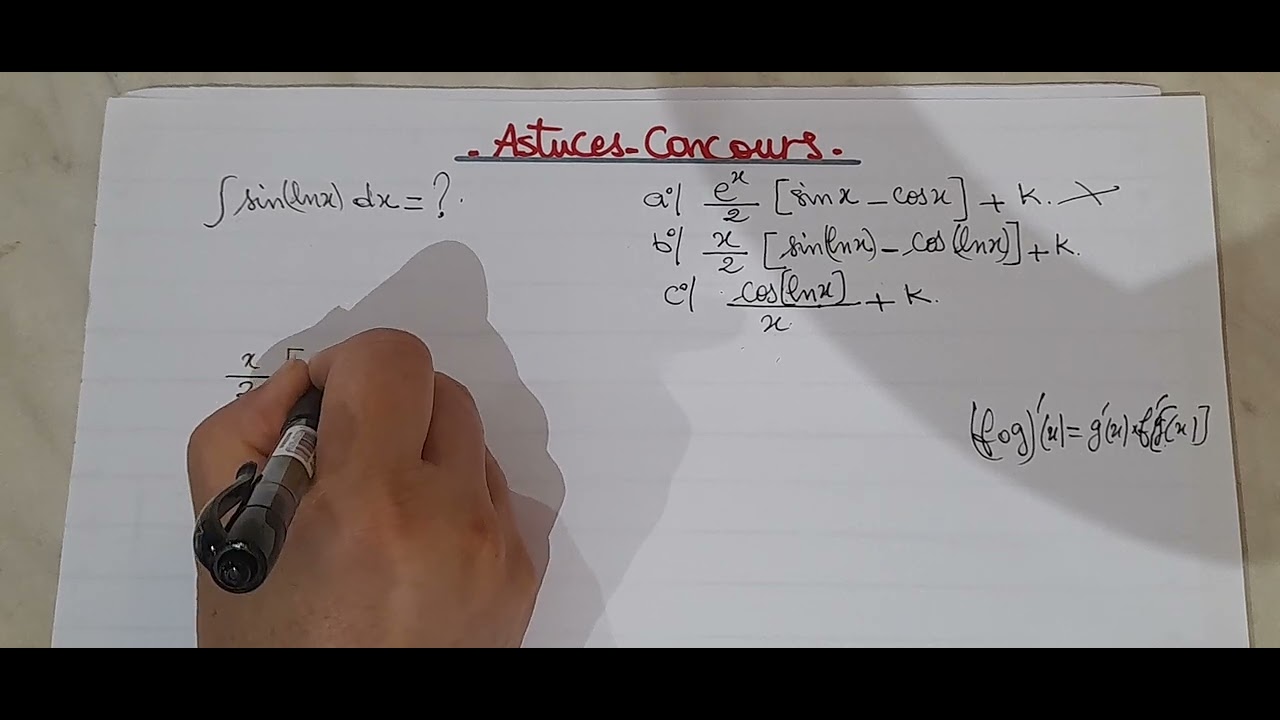 . Astuces-Concours.
∫ sin(lnx) dx = ?.
a°/ e^x/2 [sinx - cosx] + K. X
b°/ x/2 [sin(lnx) - cos(lnx)] + K.
c°/ cos(lnx)/x + K.
x/2 [
(fog)'(x) = g'(x) × f'[g(x)]